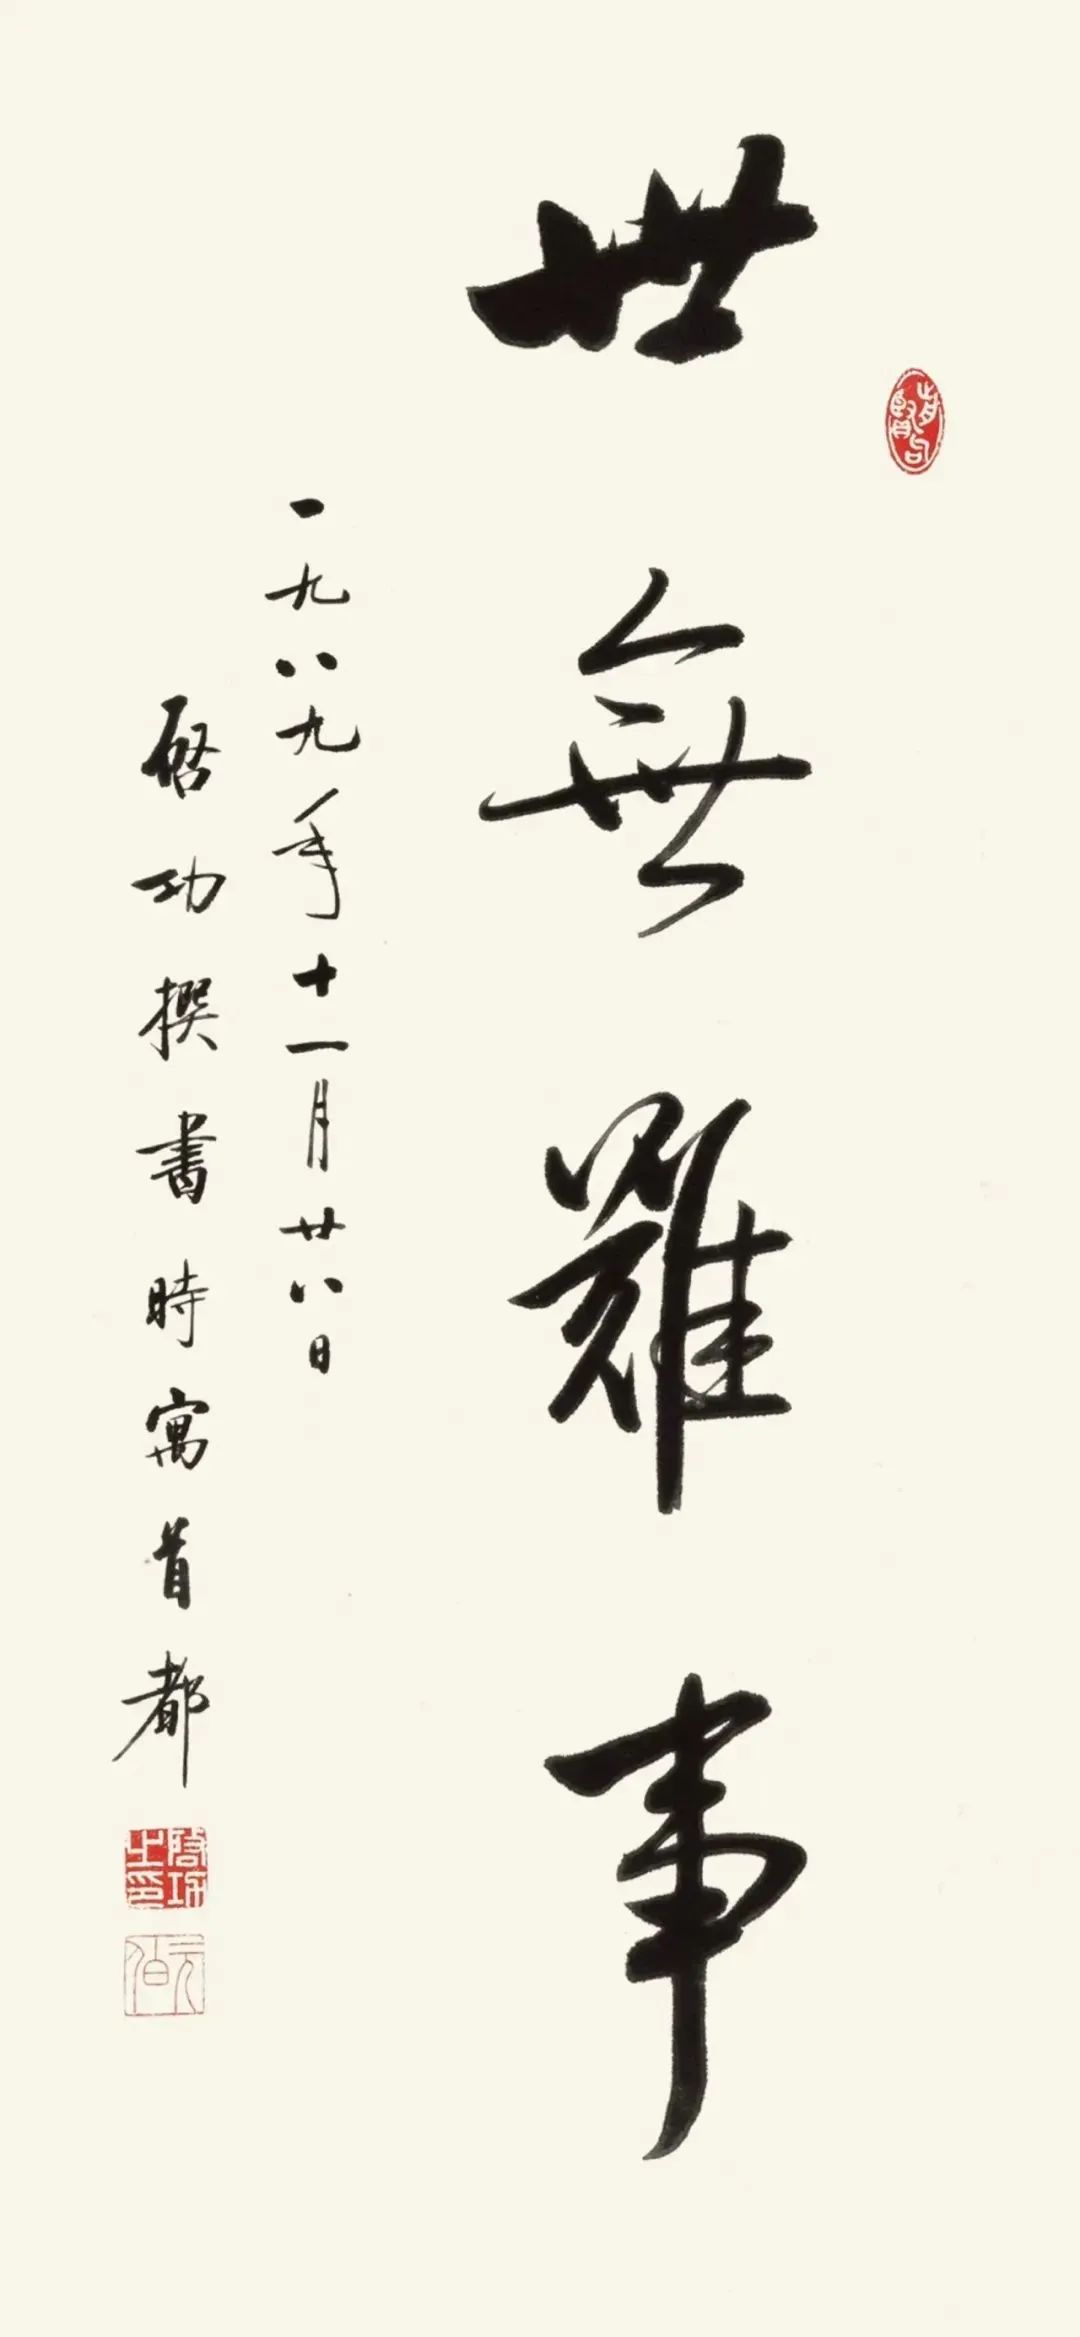 世無難事
一九八九年十一月廿八日
啓功撰書時寓首都
啓功之印
元白